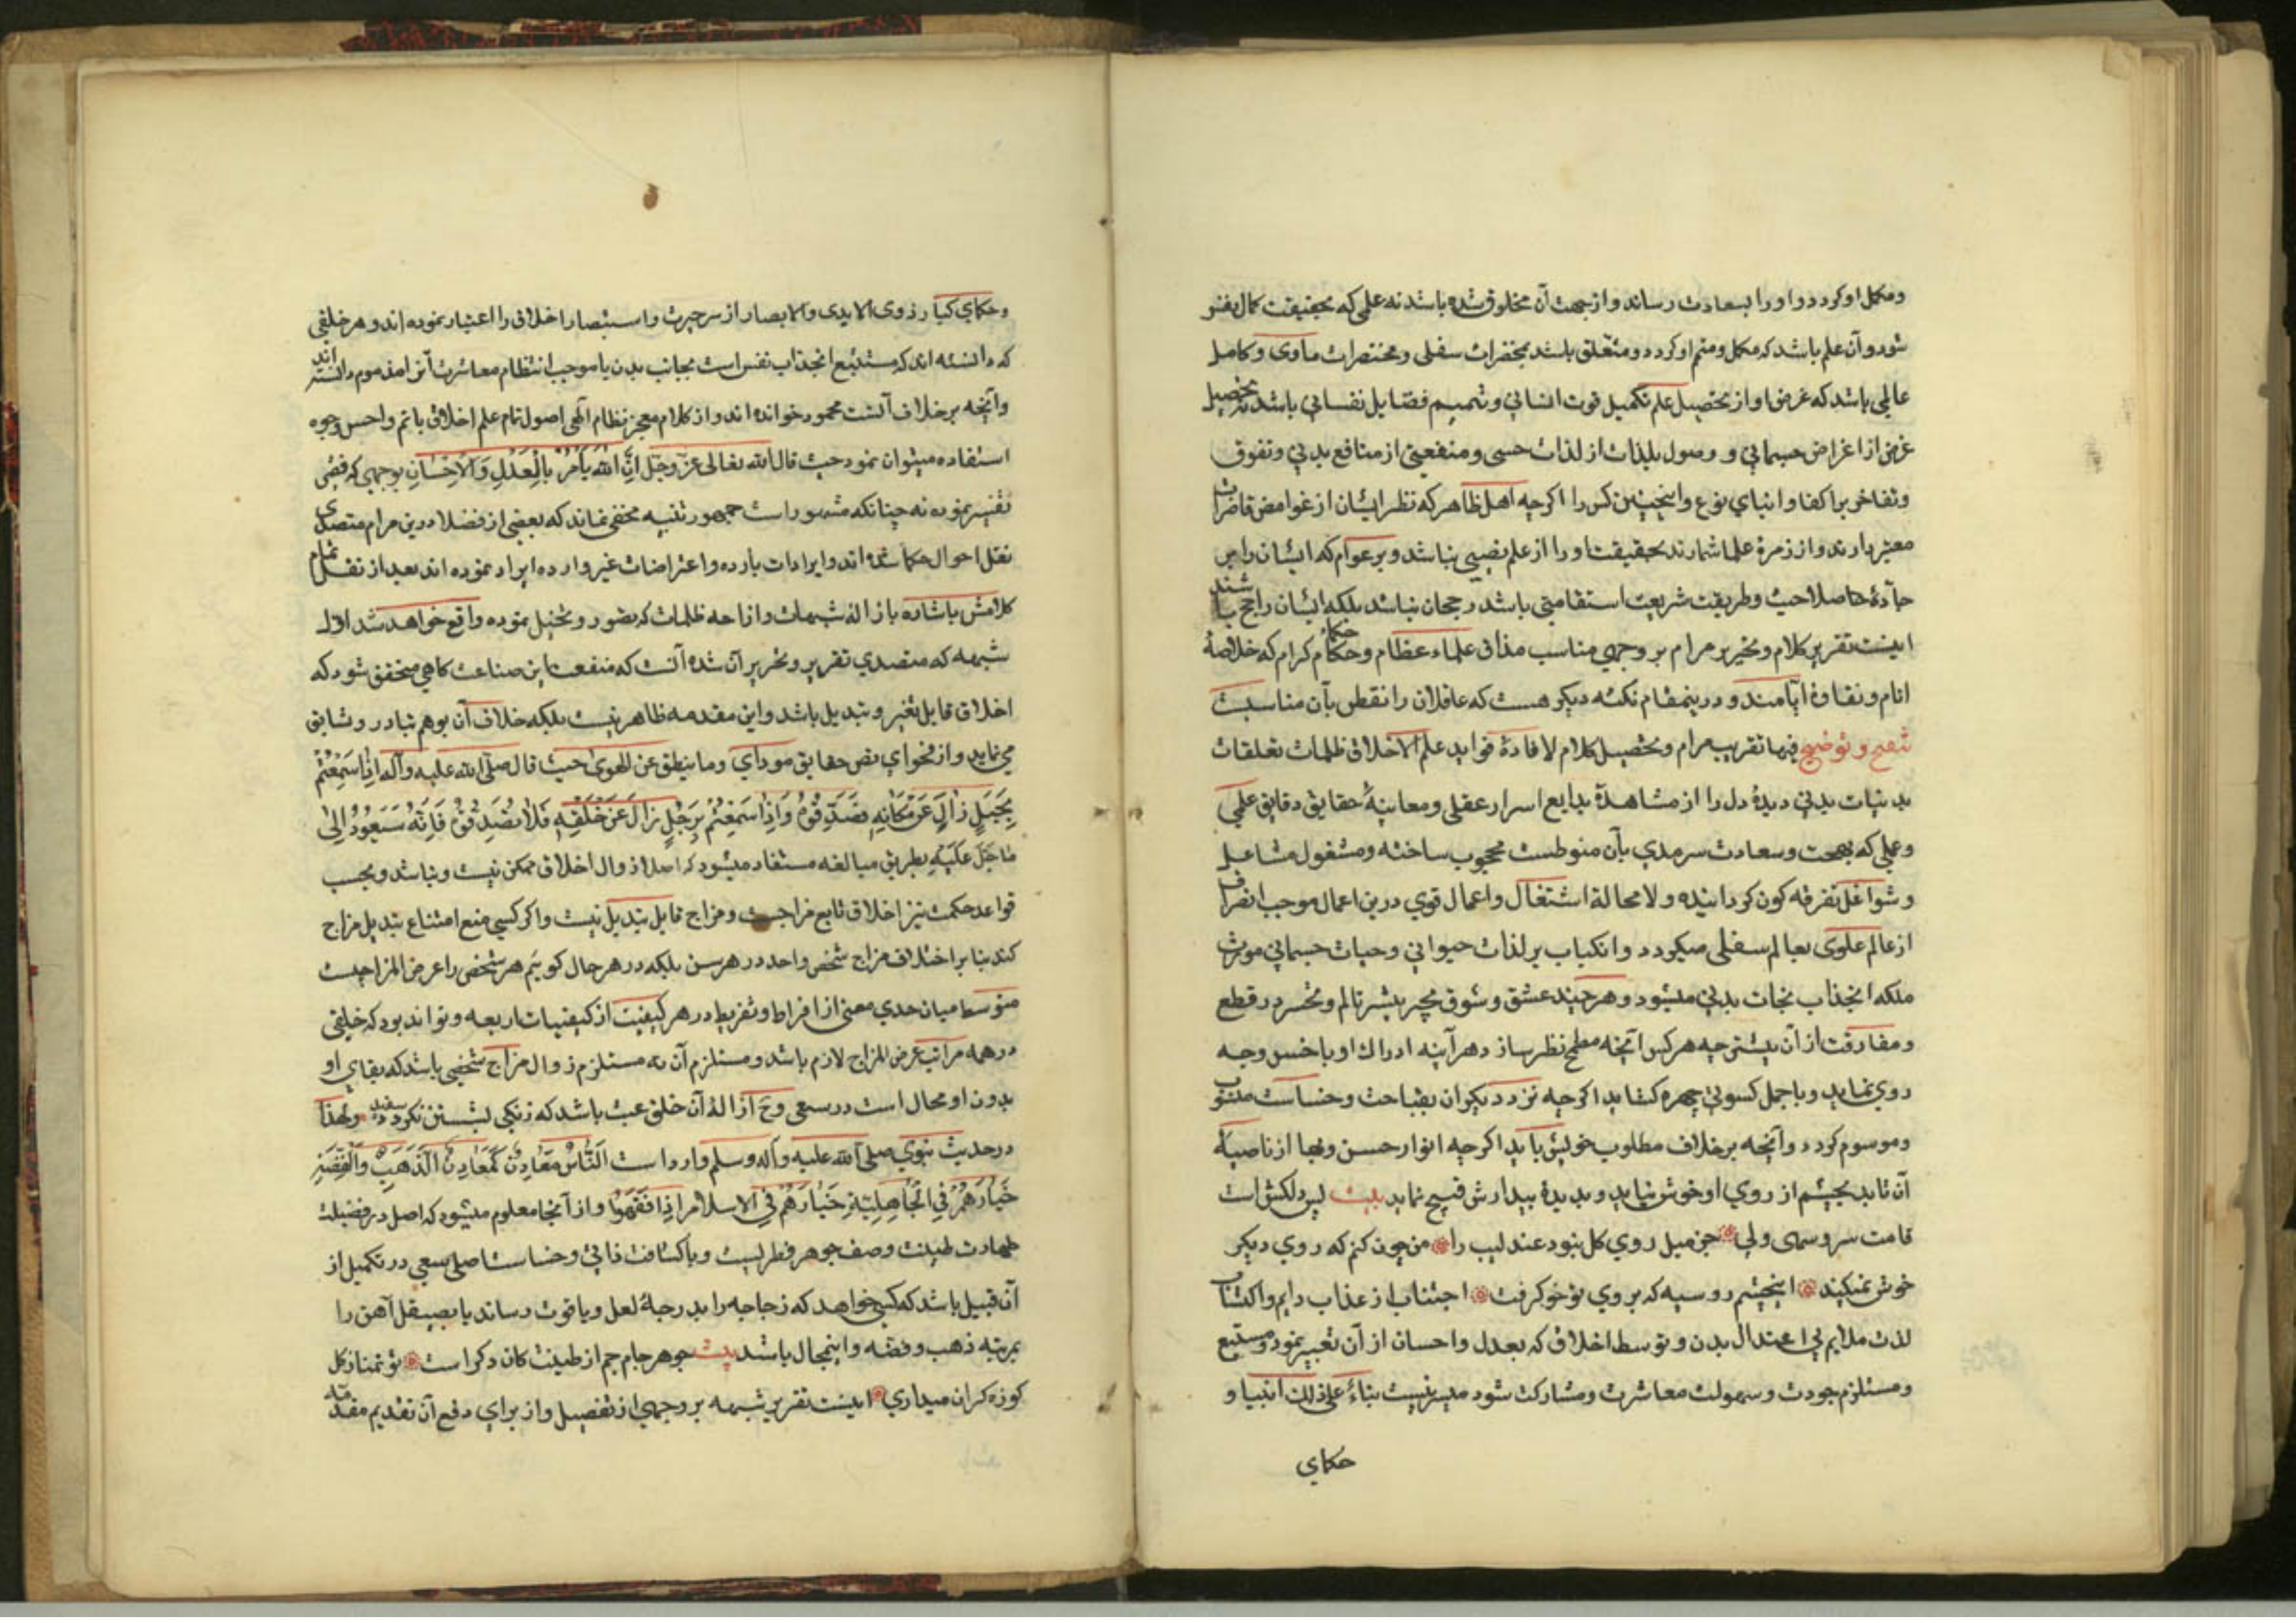 ومکمل او کردد و او را بسعادت رساند و از جهت آن مخلوق شده باشد نه علمی که بحقیقت کمال نفس
شود و آن علم باشد که مکمل و متمم او کردد و متعلق باشد بمحقرات سفلی و مختصرات ماوی و کامل
عالمی باشد که غرض او از تحصیل علم تکمیل قوت انسانی و تتمیم فضایل نفسانی باشد نه تحصیل
غرض از اغراض جسمانی و وصول بلذات از لذات حسی و منفعتی از منافع بدنی و تفوق
و تفاخر بر اکفا و ابنای نوع و اینچنین کس را اکرچه اهل ظاهر که نظر ایشان از غوامض قاصرات
معتبر دارند و از زمرهٔ علما شمارند بحقیقت او را از علم نصیبی نباشد و بر عوام که ایشان را بر
جادهٔ صلاحیت و طریقت شریعت استقامتی باشد رجحان نباشد بلکه ایشان راجح باشند
اینست تقریر کلام و تحریر مرام بر وجهی مناسب مذاق علماء عظام و حکماء کرام که خلاصهٔ
انام و نقاوهٔ ایامند و درینمقام نکته دیکر هست که عاقلان را تفطن بآن مناسبست
تنقیح و توضیح فیها تقریب مرام و تحصیل کلام لافادة فواید علم الاخلاق ظلمات تعلقات
بدنیات بدنی دیدهٔ دل را از مشاهدهٔ بدایع اسرار عقلی و معاینهٔ حقایق دقایق علمی
و عملی که بهجت و سعادت سرمدی بآن منوطست محجوب ساخته و مشغول مشاغل
و شواغل تفرقه کون کردانیده و لا محالة اشتغال و اعمال قوی درین اعمال موجب انصراف
از عالم علوی بعالم سفلی میکردد و انکباب بر لذات حیوانی و حیات جسمانی مورث
ملکه انجذاب بجانب بدنی میشود و هرچند عشق و شوق بچیز بیشتر تالم و تحسر در قطع
و مفارقت از آن بیشتر چه هر کس آنچه مطمح نظر سازد هر آینه ادراک او باخس وجه
روی نماید و باجمل کسوتی چهره کشاید اکرچه نزد دیکران بقباحت و خساست منسوب
و موسوم کردد و آنچه برخلاف مطلوب خویش یابد اکرچه انوار حسن و بها از ناصیهٔ
آن تابد بچشم از روی او خوش نیاید و بدیدهٔ بیدارش قبیح نماید بیت بس دلکش است
قامت سرو سهی ولی جز میل روی کل نبود عندلیب را من چون کنم که روی دیکر
خوش نمیکند اینچشم رو سیه که بروی تو خو کرفت اجتناب از عذاب دایم و اکتساب
لذت ملایم بی اعتدال بدن و توسط اخلاق که بعدل و احسان از آن تعبیر نمود و مستتبع
و مستلزم جودت و سهولت معاشرت و مشارکت شود میسر نیست بناءً علی ذلك انبیا و
حکمای
و حکمای کبار ذوی الایدی والابصار از سر حیرت و استبصار اخلاق را اعتبار نموده اند و هر خلقی
که دانسته اند که مستتبع انجذاب نفس است بجانب بدن یا موجب انتظام معاشرت آنرا مذموم دانسته اند
و آنچه برخلاف آنست محمود خوانده اند و از کلام معجز نظام الهی اصول تمام علم اخلاق باتم و احسن وجوه
استفاده میتوان نمود حیث قال الله تعالی عزّ وجلّ اِنَّ اللهَ یَأْمُرُ بِالْعَدْلِ وَالْاِحْسَانِ بوجهی که
تفسیر نموده نه چنانکه مشهور است جمهور تنبیه مخفی نماند که بعضی از فضلا درین مرام متصدی
نقل احوال حکما شده اند و ایرادات بارده و اعتراضات غیر وارده ایراد نموده اند بعد از نقل تمام
کلامش باشاره بازاله شبهات و ازاحه ظلمات که تصور و تخیل نموده واقع خواهد شد اوّل
شبهه که متصدی تقریر و تحریر آن شده آنست که منفعت این صناعت کاهی متحقق شود که
اخلاق قابل تغیر و تبدیل باشد و این مقدمه ظاهر نیست بلکه خلاف آن بوهم تبادر و تسابق
می نماید و از فحوای نص حقایق مودای وما ینطق عن الهوی حیث قال صلّی الله علیه وآله اِذَا سَمِعْتُمْ
بِجَبَلٍ زَالَ عَنْ مَکَانِهِ فَصَدِّقُوهُ وَاِذَا سَمِعْتُمْ بِرَجُلٍ زَالَ عَنْ خُلْقِهِ فَلَا تُصَدِّقُوهُ فَاِنَّهُ سَیَعُودُ اِلٰی
مَا جُبِلَ عَلَیْهِ بطریق مبالغه مستفاد میشود که اصلا زوال اخلاق ممکن نیست و نباشد و بحسب
قواعد حکمت نیز اخلاق تابع مزاجست و مزاج قابل تبدیل نیست و اکر کسی منع امتناع تبدیل مزاج
کند بنا بر اختلاف مزاج شخص واحد در هر سن بلکه در هر حال کوییم هر شخص را عرض المزاجیست
متوسط میان حدی معین از افراط و تفریط در هر کیفیت از کیفیات اربعه و تواند بود که خلقی
در همه مراتب عرض المزاج لازم باشد و مستلزم آن نه مستلزم زوال مزاج شخصی باشد که بقای او
بدون او محال است در سعی و ح ازالهٔ آن خلق عبث باشد که زنکی بشستن نکردد سفید ولهذا
در حدیث نبوی صلی الله علیه وآله وسلم وارد است اَلنَّاسُ مَعَادِنُ کَمَعَادِنِ الذَّهَبِ وَالْفِضَّةِ
خِیَارُهُمْ فِی الْجَاهِلِیَّةِ خِیَارُهُمْ فِی الاسلام اِذَا فَقُهُوا و از آنجا معلوم میشود که اصل در فضیلت
طهارت طینت وصف جوهر فطریست و با کثافت ذاتی و خساست اصلی سعی در تکمیل از
آن قبیل باشد که کسی خواهد که زجاجه را بدرجهٔ لعل و یاقوت رساند یا بصیقل آهن را
بمرتبه ذهب و فضه و اینمحال باشد بیت جوهر جام جم از طینت کان دکر است تو تمنا ز کل
کوزه کران میداری اینست تقریر شبهه بر وجهی از تفصیل و از برای دفع آن تقدیم مقدمه